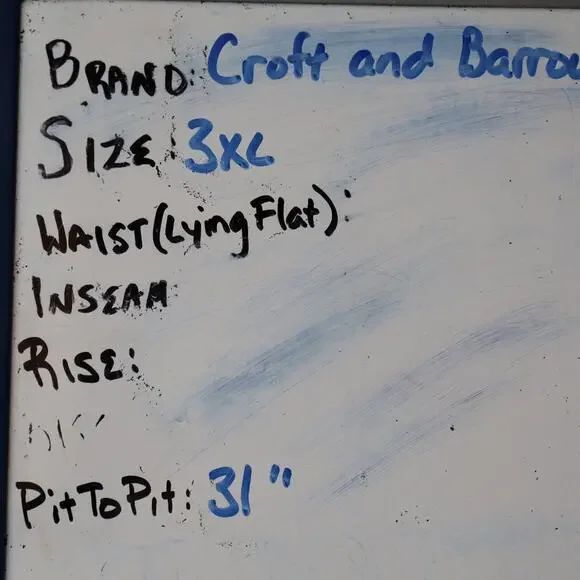 BRAND: Croft and Barrow
SIZE: 3XL
WAIST(Lying Flat):
INSEAM
RISE:
PitToPit: 31"